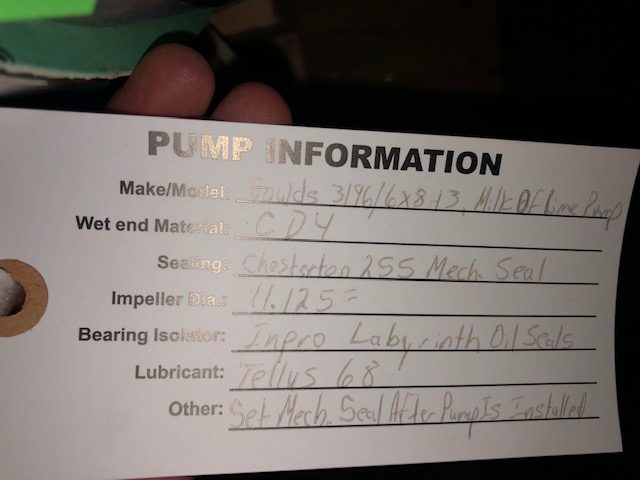 PUMP INFORMATION
Make/Model: Goulds 3196/6x8-13, Milk Of Lime Pump
Wet end Material: CD4
Sealing: Chesterton 255 Mech. Seal
Impeller Dia.: 11.125"
Bearing Isolator: Inpro Labyrinth Oil Seals
Lubricant: Tellus 68
Other: Set Mech. Seal After Pump Is Installed